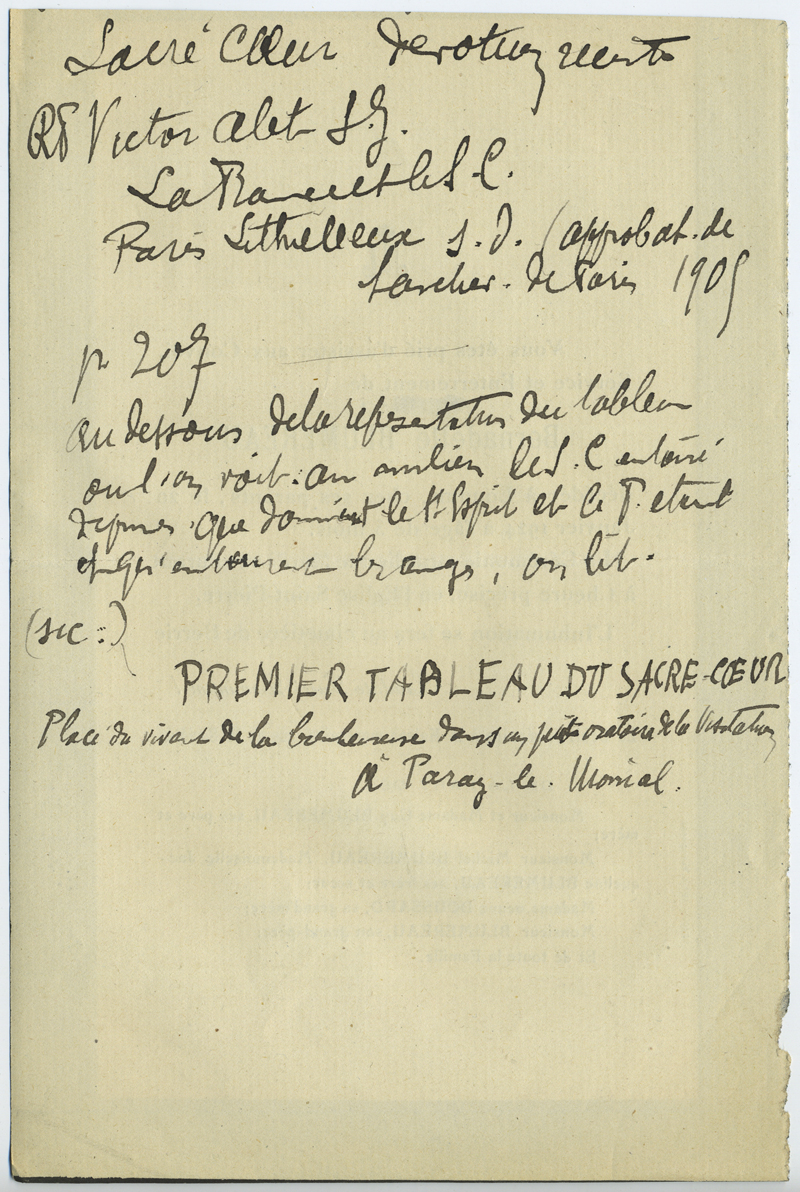 Sacré Cœur Devotion récente
RP Victor Alet S.J.
La France et le S. C.
Paris Lethielleux s. d. (approbat. de
l'archev. de Paris 1905
p 207
au dessous de la représentation du tableau
où l'on voit au milieu le S. C entouré
d'épines que dominent le St Esprit et le P. eternel
et qu'entourent les anges, on lit.
(sic :)
PREMIER TABLEAU DU SACRE-CŒUR
Placé du vivant de la bienheureuse dans un petit oratoire de la Visitation
À Paray-le-Monial.